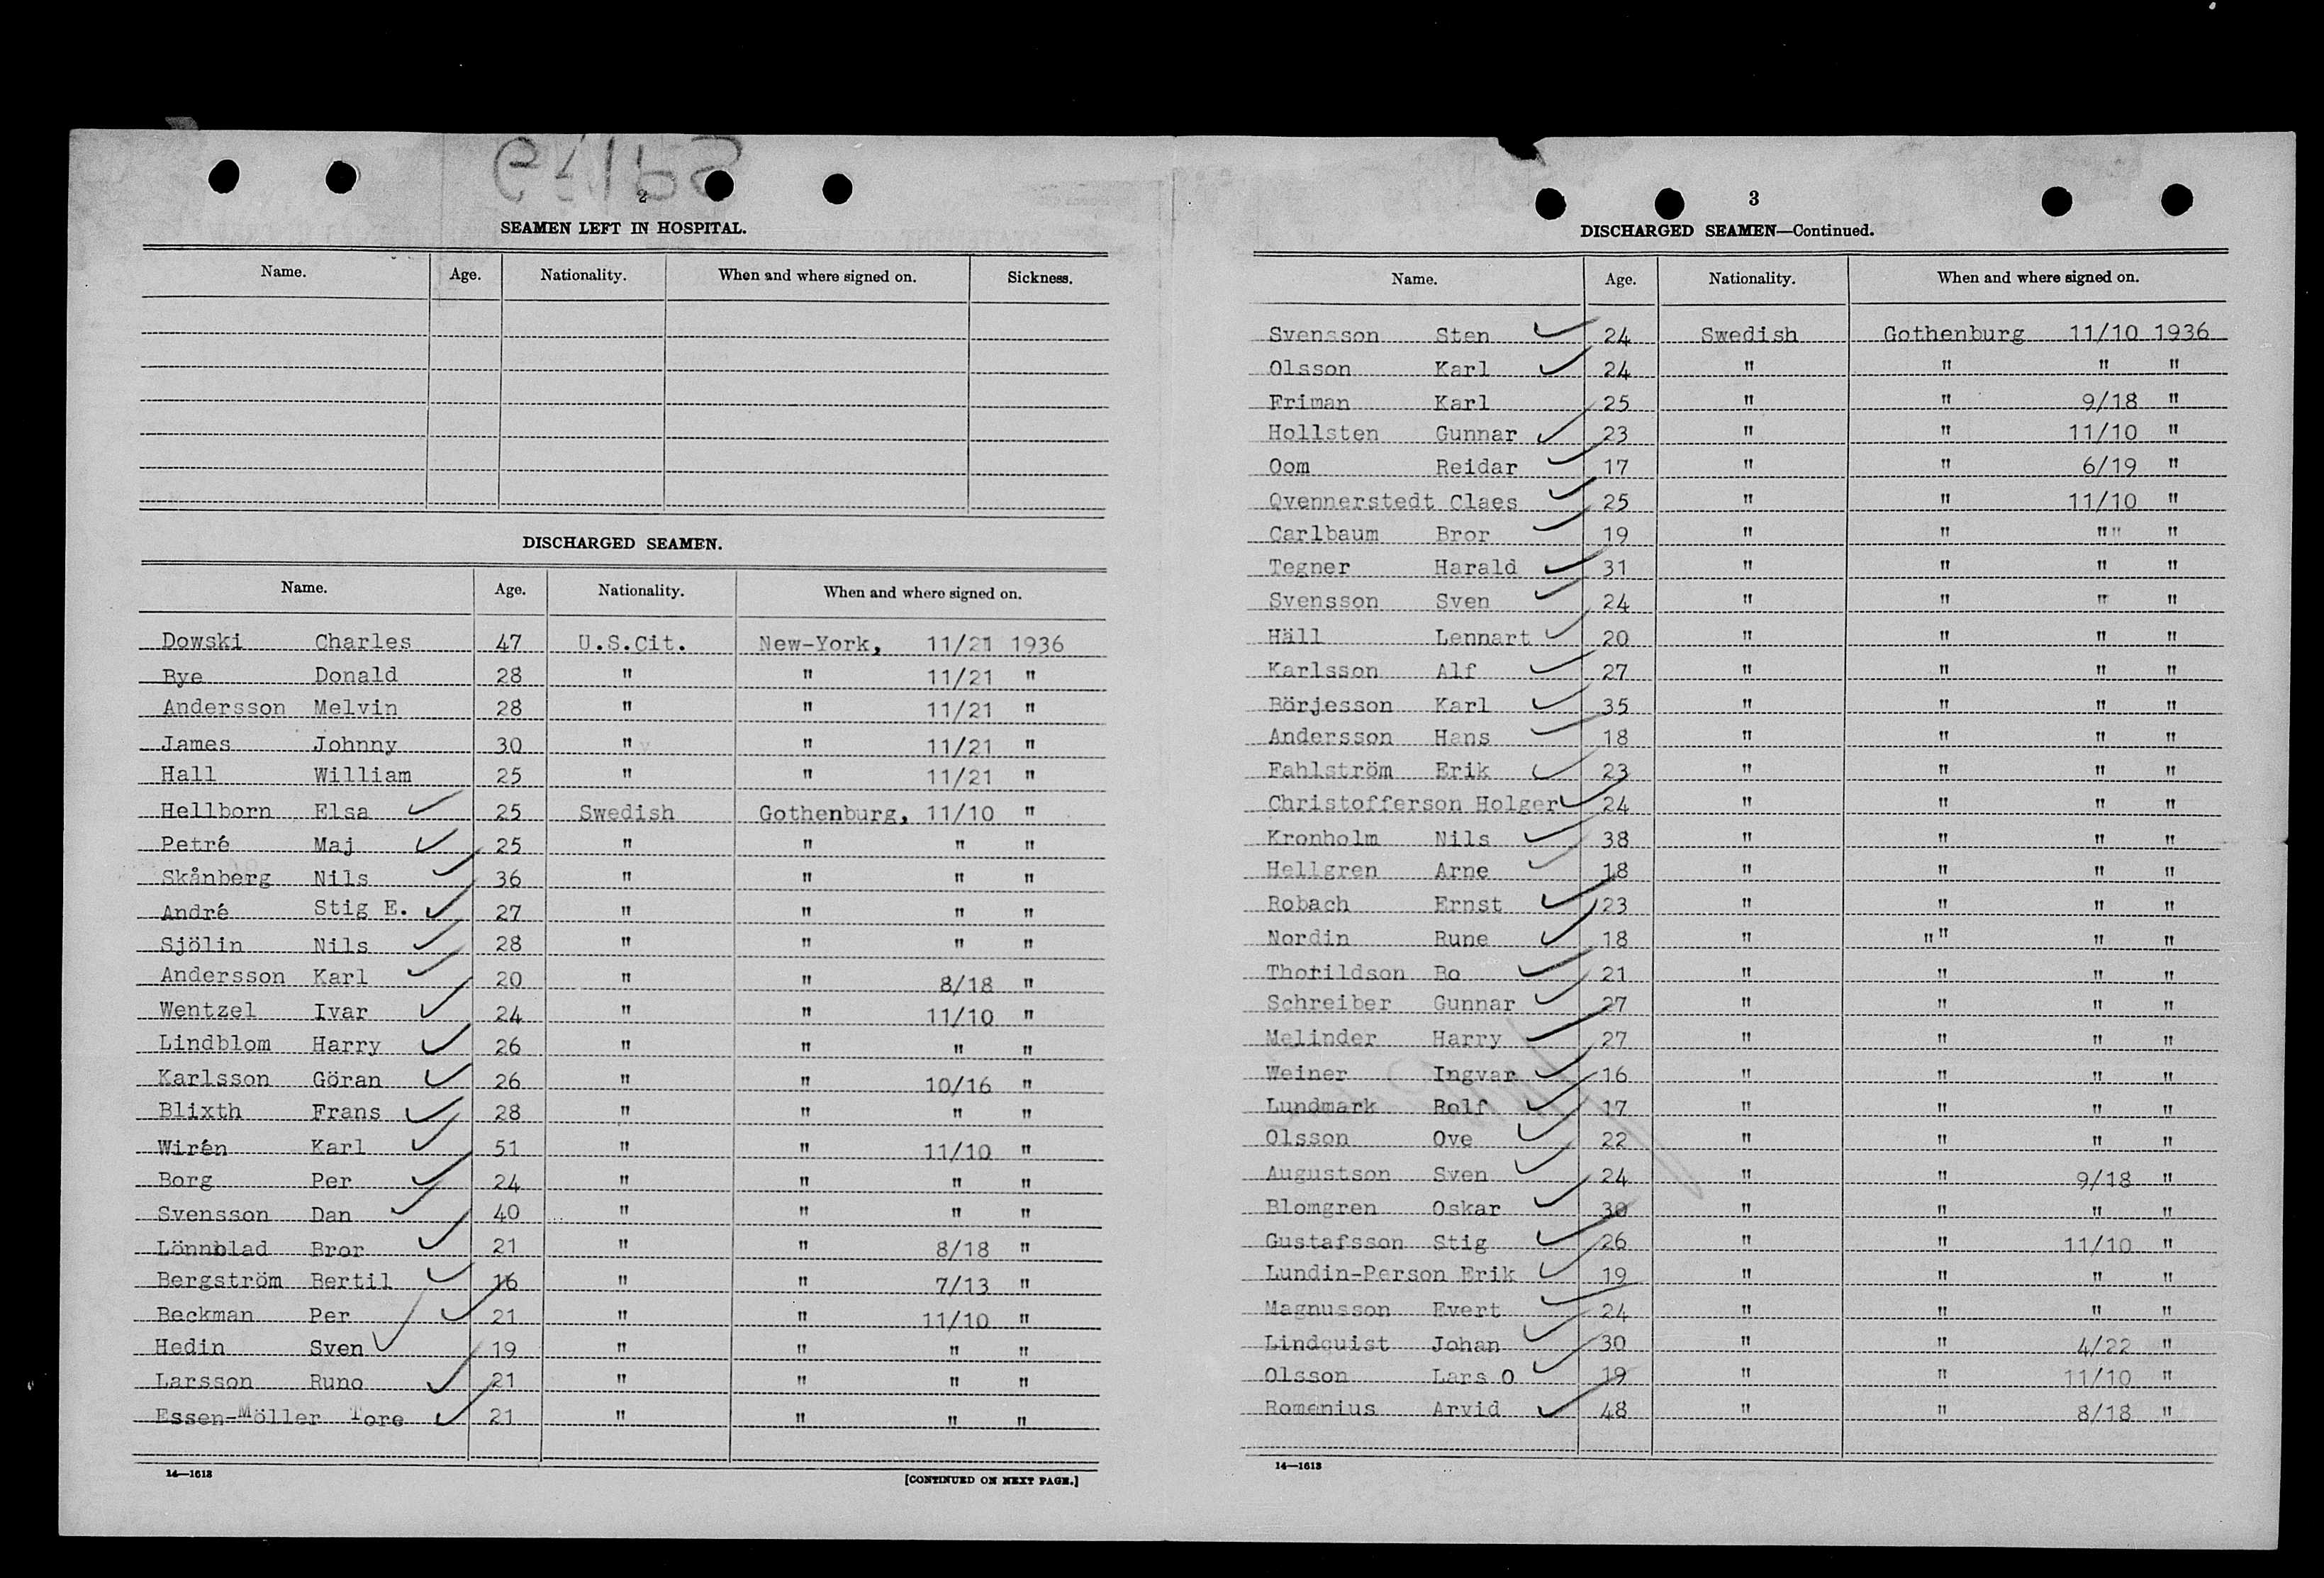 2
SEAMEN LEFT IN HOSPITAL.
Name. Age. Nationality. When and where signed on. Sickness.
DISCHARGED SEAMEN.
Name. Age. Nationality. When and where signed on.
Dowski Charles 47 U.S.Cit. New-York, 11/21 1936
Bye Donald 28 " " 11/21 "
Andersson Melvin 28 " " 11/21 "
James Johnny 30 " " 11/21 "
Hall William 25 " " 11/21 "
Hellborn Elsa ✓ 25 Swedish Gothenburg, 11/10 "
Petré Maj ✓ 25 " " " "
Skånberg Nils ✓ 36 " " " "
André Stig E. ✓ 27 " " " "
Sjölin Nils ✓ 28 " " " "
Andersson Karl ✓ 20 " " 8/18 "
Wentzel Ivar ✓ 24 " " 11/10 "
Lindblom Harry ✓ 26 " " " "
Karlsson Göran ✓ 26 " " 10/16 "
Blixth Frans ✓ 28 " " " "
Wirén Karl ✓ 51 " " 11/10 "
Borg Per ✓ 24 " " " "
Svensson Dan ✓ 40 " " " "
Lönnblad Bror ✓ 21 " " 8/18 "
Bergström Bertil ✓ 16 " " 7/13 "
Beckman Per ✓ 21 " " 11/10 "
Hedin Sven ✓ 19 " " " "
Larsson Runo ✓ 21 " " " "
Essen-Möller Tore ✓ 21 " " " "
14—1613 [CONTINUED ON NEXT PAGE.]
3
DISCHARGED SEAMEN—Continued.
Name. Age. Nationality. When and where signed on.
Svensson Sten ✓ 24 Swedish Gothenburg 11/10 1936
Olsson Karl ✓ 24 " " " "
Friman Karl 25 " " 9/18 "
Hollsten Gunnar ✓ 23 " " 11/10 "
Oom Reidar ✓ 17 " " 6/19 "
Qvennerstedt Claes ✓ 25 " " 11/10 "
Carlbaum Bror ✓ 19 " " "" "
Tegner Harald ✓ 31 " " " "
Svensson Sven ✓ 24 " " " "
Häll Lennart ✓ 20 " " " "
Karlsson Alf ✓ 27 " " " "
Börjesson Karl ✓ 35 " " " "
Andersson Hans ✓ 18 " " " "
Fahlström Erik ✓ 23 " " " "
Christofferson Holger ✓ 24 " " " "
Kronholm Nils ✓ 38 " " " "
Hellgren Arne ✓ 18 " " " "
Robach Ernst ✓ 23 " " " "
Nordin Rune ✓ 18 " "" " "
Thorildson Bo ✓ 21 " " " "
Schreiber Gunnar ✓ 27 " " " "
Melinder Harry ✓ 27 " " " "
Weiner Ingvar ✓ 16 " " " "
Lundmark Rolf ✓ 17 " " " "
Olsson Ove ✓ 22 " " " "
Augustson Sven ✓ 24 " " 9/18 "
Blomgren Oskar ✓ 30 " " " "
Gustafsson Stig ✓ 26 " " 11/10 "
Lundin-Person Erik ✓ 19 " " " "
Magnusson Evert ✓ 24 " " " "
Lindquist Johan ✓ 30 " " 4/22 "
Olsson Lars O ✓ 19 " " 11/10 "
Romenius Arvid ✓ 48 " " 8/18 "
14—1613